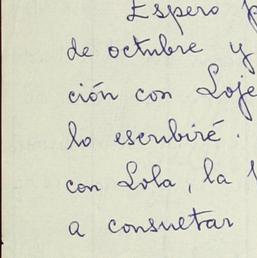 Espero
de octubre y
ción con Loje
lo escribiré.
con Lola, la
a consuetar